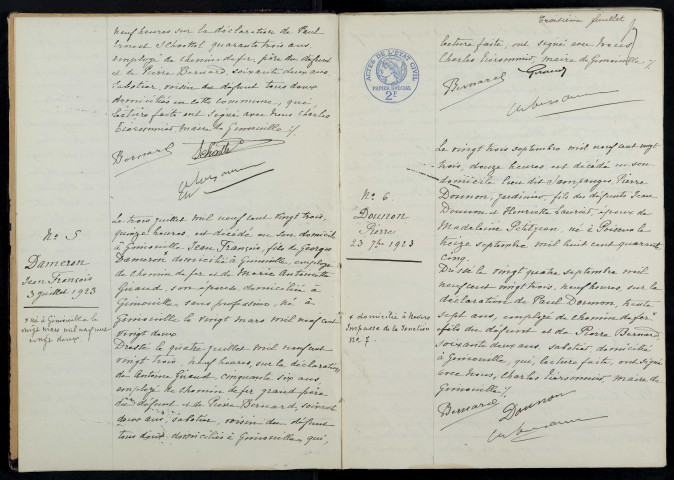 neuf heures sur la déclaration de Paul
Ernest Schoettel quarante trois ans
employé de chemin de fer, père du défunt
et de Pierre Bernard, soixante deux ans,
sabotier, voisin du défunt tous deux
domiciliés en cette commune, qui,
lecture faite ont signé avec Nous Charles
maire de Gimouille ./.
Bernard
N° 5
Dameron
Jean François
3 juillet 1923
+ né à Gimouille le
vingt mars mil neuf cent
vingt deux
Le trois juillet mil neuf cent vingt trois,
quinze heures, est décédé en son domicile
à Gimouille Jean François, fils de Georges
Dameron domicilié à Gimouille, employé
de chemin de fer et de Marie Antoinette
Giraud, son épouse, domiciliée à
Gimouille, sans profession, né à
Gimouille le vingt mars mil neuf cent
vingt deux
Dressé le quatre juillet mil neuf cent
vingt trois neuf heures, sur la déclaration
de Antoine Giraud, cinquante six ans,
employé de chemin de fer grand-père
du défunt et de Pierre Bernard, soixante
deux ans, sabotier, voisin du défunt
tous deux domiciliés à Gimouille, qui,
Troisième feuillet
ACTES DE L'ETAT CIVIL
PAPIER SPECIAL
2F
lecture faite, ont signé avec Nous
Charles maire de Gimouille ./.
Bernard
Giraud
N° 6
Dounon
Pierre
23 7bre 1923
+ domicilié à Nevers
Impasse de la Jonction
N° 7.
Le vingt trois septembre mil neuf cent vingt
trois, douze heures est décédé en son
domicile lieu dit Pierre
Dounon, jardinier, fils des défunts Jean
Dounon et Henriette époux de
Madeleine Petitjean, né à le
treize septembre mil huit cent quarante
cinq.
Dressé le vingt quatre septembre mil
neuf cent vingt trois, neuf heures, sur la
déclaration de Paul Dounon, trente
sept ans, employé de chemin de fer
fils du défunt et de Pierre Bernard,
soixante deux ans, sabotier, domicilié
à Gimouille, qui, lecture faite, ont signé
avec Nous, Charles maire de
Gimouille ./.
Bernard
Dounon